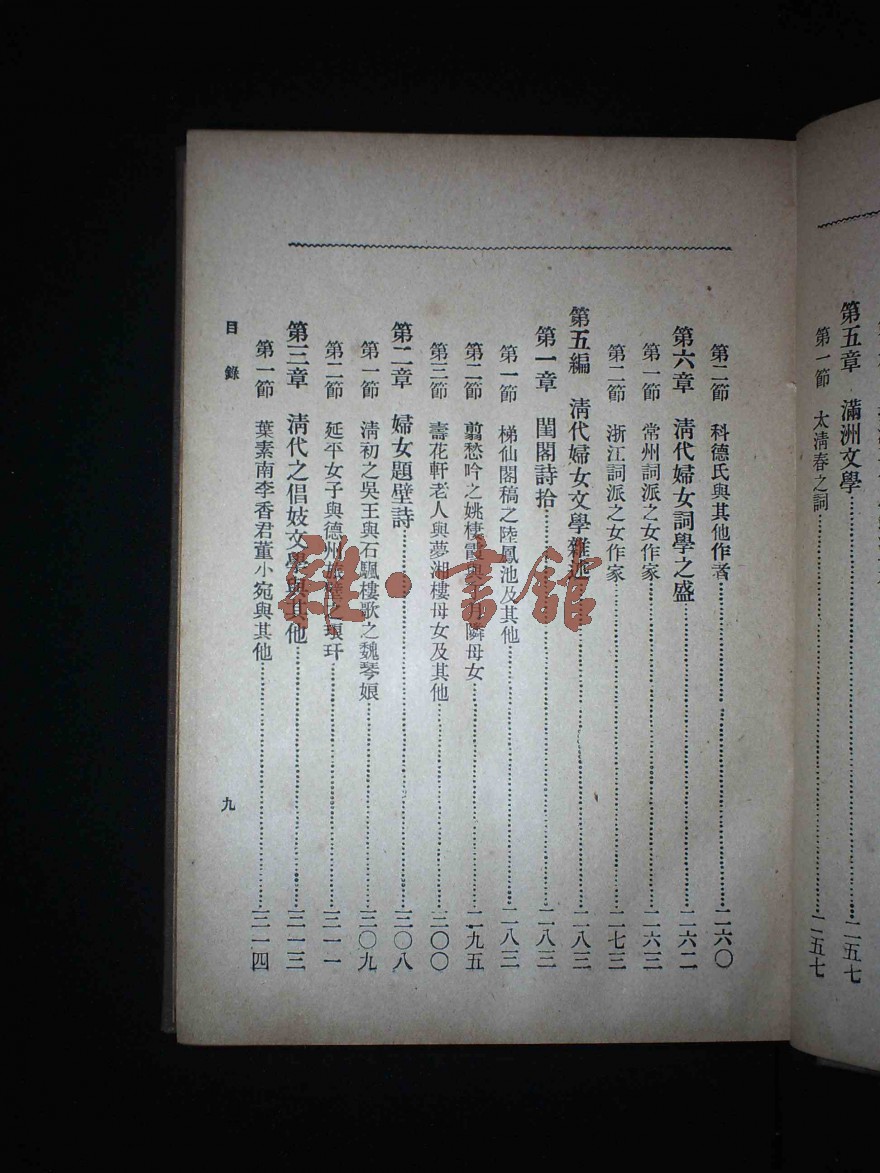 第五章 滿洲文學……二五七
第一節 太淸春之詞……二五七
第二節 科德氏與其他作者……二六〇
第六章 淸代婦女詞學之盛……二六二
第一節 常州詞派之女作家……二六三
第二節 浙江詞派之女作家……二七三
第五編 淸代婦女文學雜述……二八三
第一章 閨閣詩拾……二八三
第一節 梯仙閣稿之陸鳳池及其他……二八三
第二節 翦愁吟之姚棲霞與王月隣母女……二九五
第三節 壽花軒老人與夢湘樓母女及其他……三〇〇
第二章 婦女題壁詩……三〇八
第一節 淸初之吳王與石颿樓歌之魏琴娘……三〇九
第二節 延平女子與德州旅壁之琅玕……三一一
第三章 淸代之倡妓文學與其他……三一三
第一節 葉素南李香君董小宛與其他……三一四
目錄
九
雜·書館